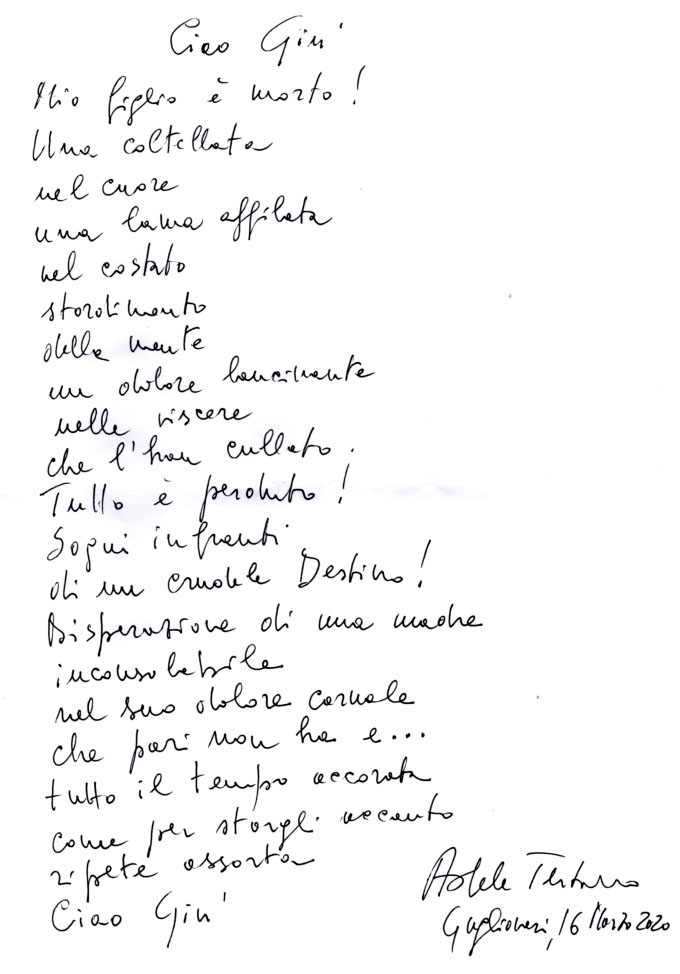 Ciao Giu'
Mio figlio è morto!
Una coltellata
nel cuore
una lama affilata
nel costato
stordimento
della mente
un dolore lancinante
nelle viscere
che l'han cullato.
Tutto è perduto!
Sogni infranti
di un crudele Destino!
Disperazione di una madre
inconsolabile
nel suo dolore carnale
che pari non ha e...
tutto il tempo accorata
come per stargli accanto
ripete assorta
Ciao Giu'
Adele
Guglionesi, 16 Marzo 2020